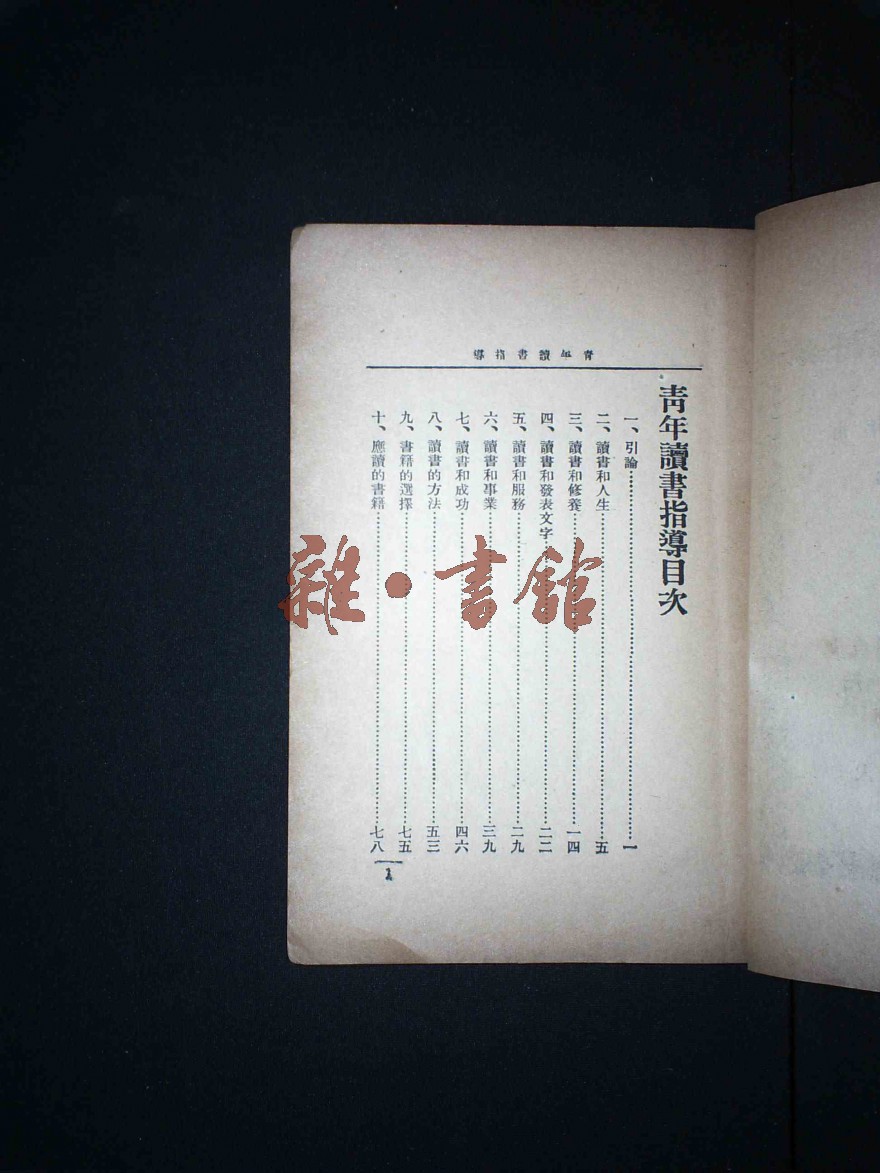 青年讀書指導
青年讀書指導目次
一、引論……一
二、讀書和人生……五
三、讀書和修養……一四
四、讀書和發表文字……二二
五、讀書和服務……二九
六、讀書和事業……三九
七、讀書和成功……四六
八、讀書的方法……五三
九、書籍的選擇……七五
十、應讀的書籍……七八
1
雜·書館